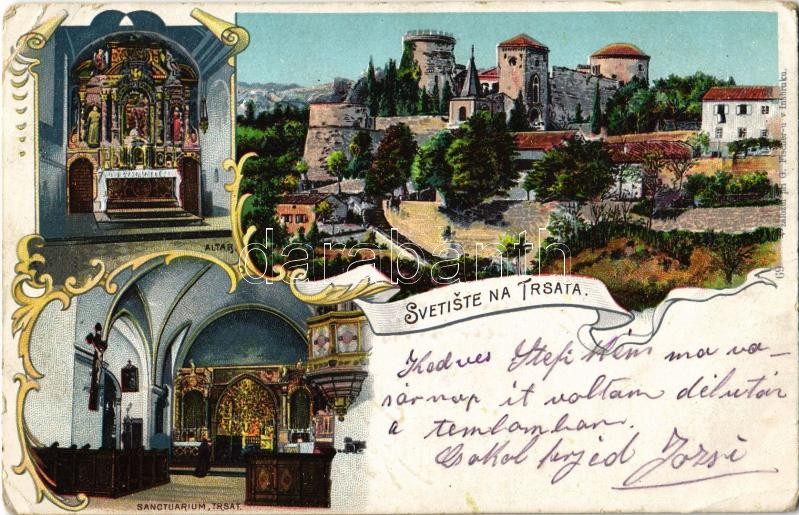 ALTAR.
SVETIŠTE NA TRSATA.
SANCTUARIUM, TRSAT.
darabanth
Kedves Stefi Ném ma va-
sárnap it voltam délután
a templomban.
Csokol hyéd Jozsi